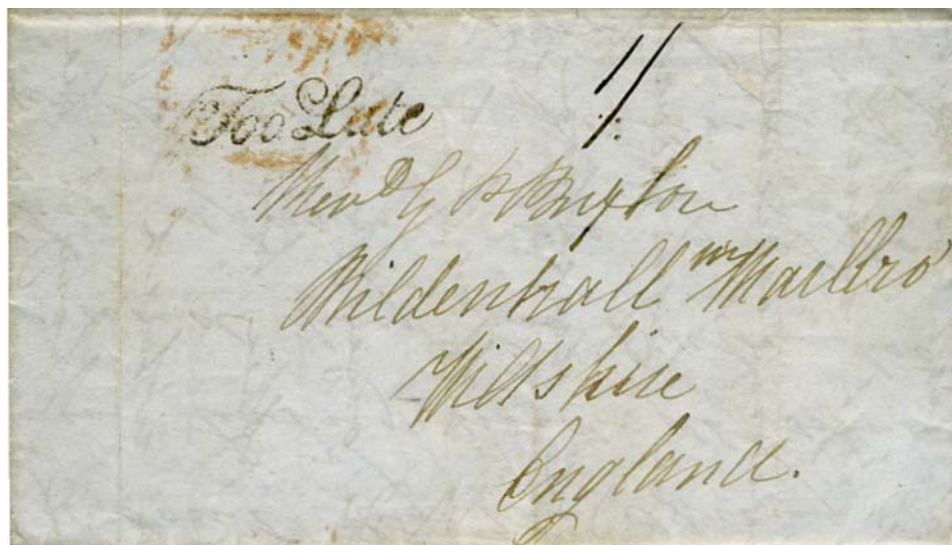 Too Late
1/
Revd G P Buxton
Mildenhall nr Marlbro'
Wiltshire
England.